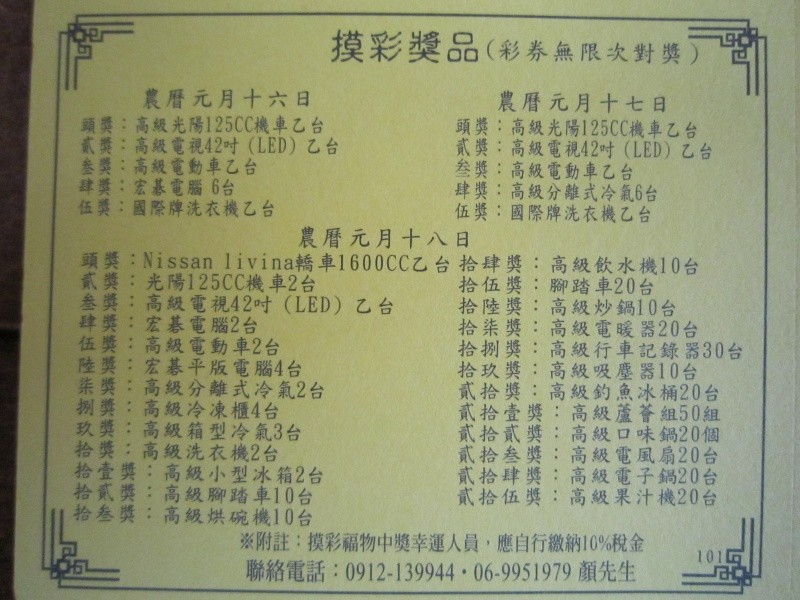 摸彩獎品(彩券無限次對獎)
農曆元月十六日
頭獎：高級光陽125CC機車乙台
貳獎：高級電視42吋(LED)乙台
叁獎：高級電動車乙台
肆獎：宏碁電腦 6台
伍獎：國際牌洗衣機乙台
農曆元月十七日
頭獎：高級光陽125CC機車乙台
貳獎：高級電視42吋(LED)乙台
叁獎：高級電動車乙台
肆獎：高級分離式冷氣6台
伍獎：國際牌洗衣機乙台
農曆元月十八日
頭獎：Nissan livina轎車1600CC乙台
貳獎：光陽125CC機車2台
叁獎：高級電視42吋(LED)乙台
肆獎：宏碁電腦2台
伍獎：高級電動車2台
陸獎：宏碁平版電腦4台
柒獎：高級分離式冷氣2台
捌獎：高級冷凍櫃4台
玖獎：高級箱型冷氣3台
拾獎：高級洗衣機2台
拾壹獎：高級小型冰箱2台
拾貳獎：高級腳踏車10台
拾叁獎：高級烘碗機10台
拾肆獎：高級飲水機10台
拾伍獎：腳踏車20台
拾陸獎：高級炒鍋10台
拾柒獎：高級電暖器20台
拾捌獎：高級行車記錄器30台
拾玖獎：高級吸塵器10台
貳拾獎：高級釣魚冰桶20台
貳拾壹獎：高級蘆薈組50組
貳拾貳獎：高級口味鍋20個
貳拾叁獎：高級電風扇20台
貳拾肆獎：高級電子鍋20台
貳拾伍獎：高級果汁機20台
※附註：摸彩福物中獎幸運人員，應自行繳納10%稅金
聯絡電話：0912-139944・06-9951979 顏先生
101